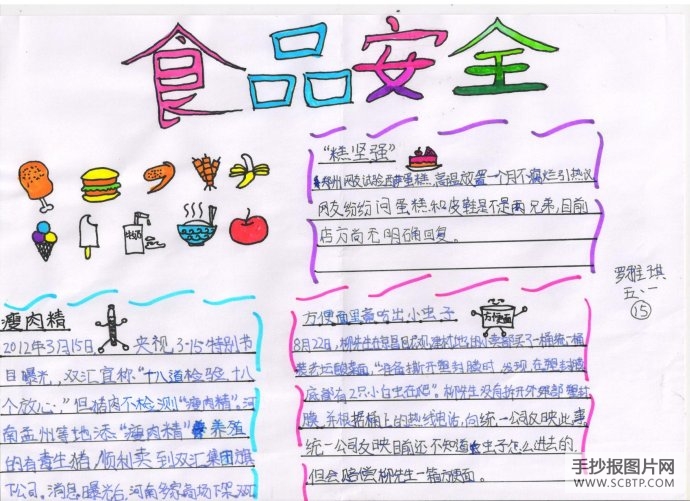 食品安全
"糕坚强"
郑州网友试验西萨蛋糕,常温放置一个月不腐烂引热议
网友纷纷问蛋糕和皮鞋是不是两兄弟,目前
店方尚无明确回复。
牛奶
罗雅琪
五、一
15
瘦肉精
2012年3月15日, 央视3·15特别节
目曝光,双汇宣称"十八道检验、十八
个放心,"但猪肉不检测"瘦肉精"。河
南孟州等地添"瘦肉精"养殖
的有毒生猪,顺利卖到双汇集团旗
下公司。消息曝光后,河南多家商场下架双
方便面里高吃出小虫子
方便面
8月22日,柳先生在
小卖部买了一桶统一桶
装老坛酸菜面,"准备撕开塑封膜时,发现,在塑封膜
底部有2只小白虫在爬"。柳先生没有拆开外部塑封
膜,并根据桶上的热线电话,向统一公司反映此事
统一公司反映目前还不知道虫子怎么进去的,
但会赔偿柳先生一箱方便面。
手抄报图片网
WWW.SCBTP.COM